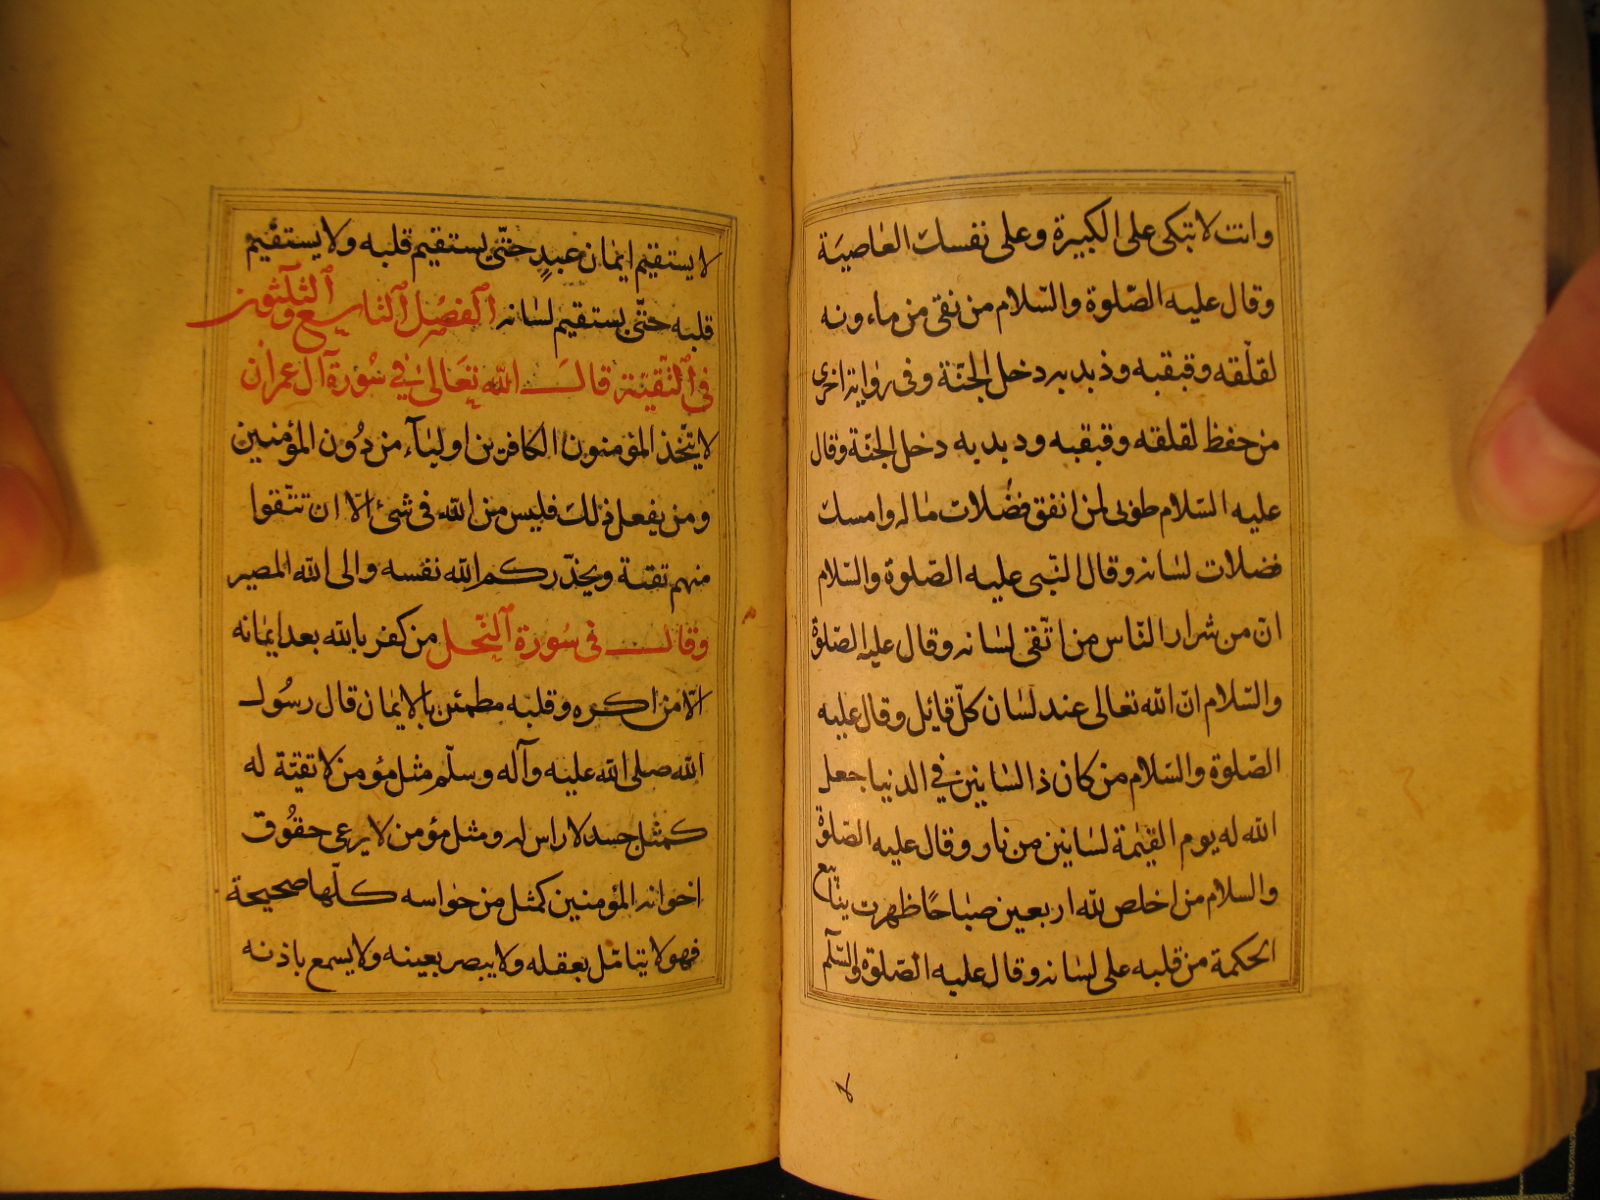 وانت لا تبكى على الكبيرة وعلى نفسك العاصية
وقال عليه الصّلوة والسّلام من نقى من ماء ونه
لقلقه وقبقبه وذبذبه دخل الجنّة وفى رواية اخرى
من حفظ لقلقه وقبقبه ودبدبه دخل الجنّة وقال
عليه السّلام طوبى لمن انفق فضلات ماله وامسك
فضلات لسانه وقال النّبى عليه الصّلوة والسّلام
انّ من شرار النّاس من اتّقى لسانه وقال عليه الصّلوة
والسّلام انّ الله تعالى عند لسان كلّ قايل وقال عليه
الصّلوة والسّلام من كان ذا لسانين في الدنيا جعل
الله له يوم القيٰمة لسانين من نار وقال عليه الصّلوة
والسلام من اخلص لله اربعين صباحًا ظهرت ينابيع
الحكمة من قلبه على لسانه وقال عليه الصّلوة والسّلام
لا
لا يستقيم ايمان عبدٍ حتّى يستقيم قلبه ولا يستقيم
قلبه حتّى يستقيم لسانه الفصل التاسع والثلثون
في التقيّة قال الله تعالى في سورة آل عمران
لا يتّخذ المؤمنون الكافرين اولياء من دون المؤمنين
ومن يفعل ذلك فليس من الله فى شئ الّا ان تتّقوا
منهم تقية ويحذّركم الله نفسه والى الله المصير
وقال فى سورة النّحل من كفر بالله بعد ايمانه
الّا من اكره وقلبه مطمئن بالايمان قال رسول
الله صلى الله عليه وآله وسلّم مثل مؤمن لا تقيّة له
كمثل جسد لا راس له ومثل مؤمن لا يرعى حقوق
اخوانه المؤمنين كمثل من حواسه كلّها صحيحة
فهو لا يتامّل بعقله ولا يبصر بعينه ولا يسمع باذنه